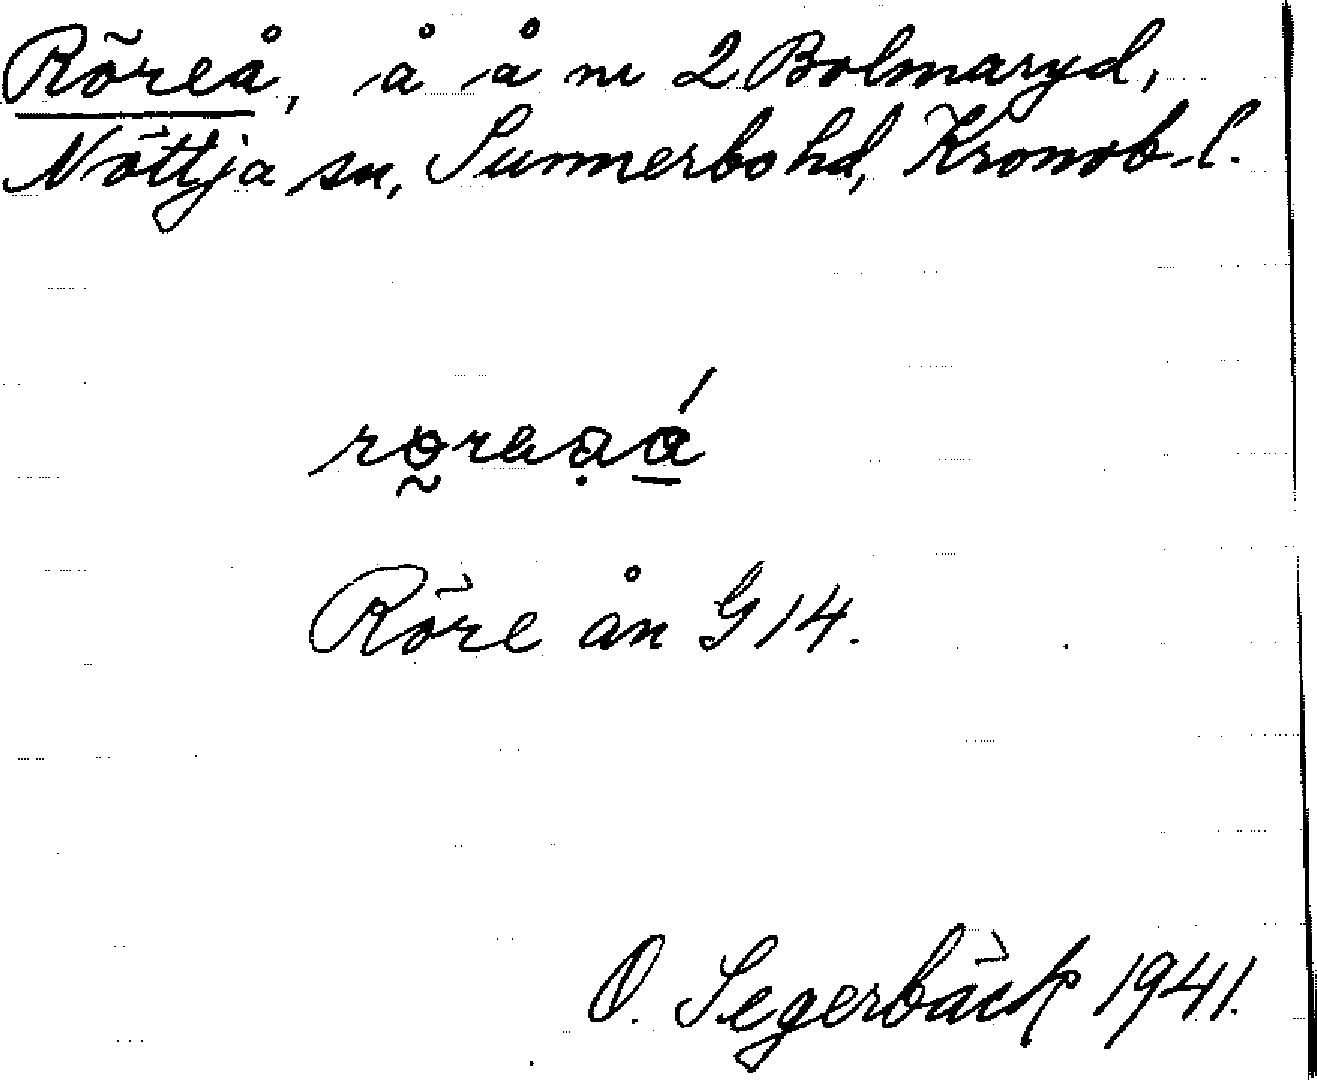 Röreå, å å nr 2 Bolmaryd,
Nöttja sn, Sunnerbo hd, Kronob. l.
Röre ån G 14.
O. Segerbäck 1941.